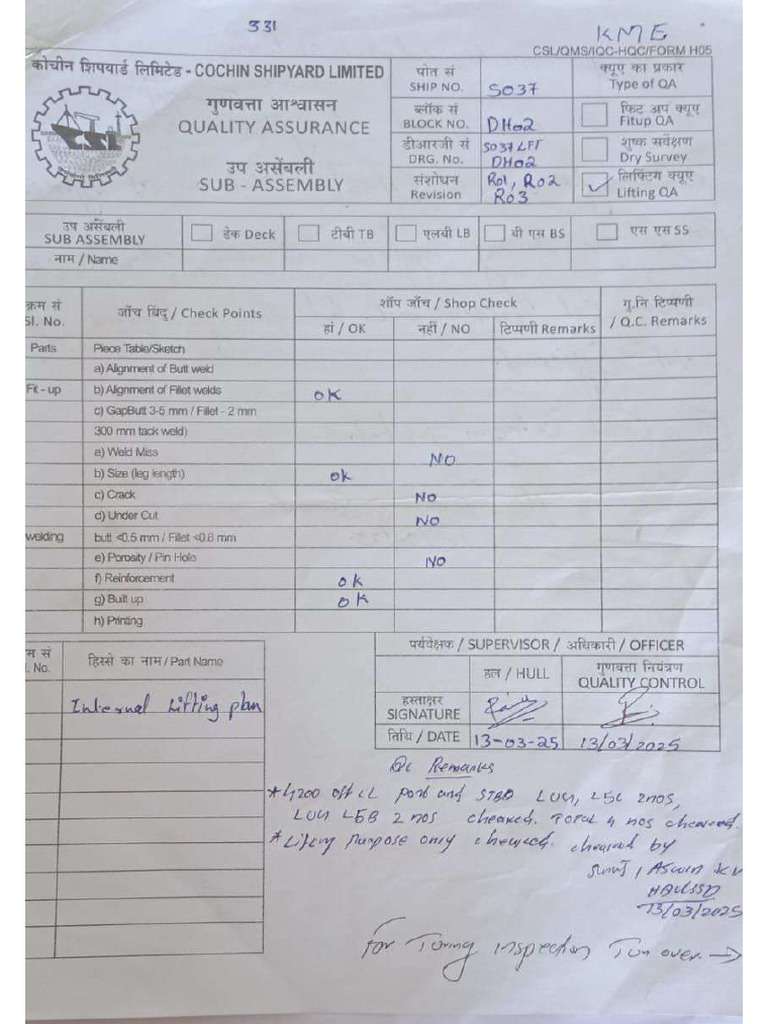 331
KME
CSL/QMS/IQC-HQC/FORM H05
कोचीन शिपयार्ड लिमिटेड - COCHIN SHIPYARD LIMITED
गुणवत्ता आश्वासन
QUALITY ASSURANCE
उप असेंबली
SUB - ASSEMBLY
CSL
पोत सं
SHIP NO.
SO37
ब्लॉक सं
BLOCK NO.
DH02
डीआरजी सं
DRG. No.
SO37 LFT
DH02
संशोधन
Revision
R01, R02
R03
क्यूए का प्रकार
Type of QA
फिट अप क्यूए
Fitup QA
शुष्क सर्वेक्षण
Dry Survey
✓ लिफ्टिंग क्यूए
Lifting QA
उप असेंबली
SUB ASSEMBLY
डेक Deck
टीबी TB
एलबी LB
बी एस BS
एस एस SS
नाम / Name
क्रम सं
Sl. No.
जाँच बिंदु / Check Points
शॉप जाँच / Shop Check
हां / OK
नहीं / NO
टिप्पणी Remarks
गु.नि टिप्पणी
/ Q.C. Remarks
Parts Piece Table/Sketch
a) Alignment of Butt weld
Fit - up b) Alignment of Fillet welds OK
c) GapButt 3-5 mm / Fillet - 2 mm
300 mm tack weld)
a) Weld Miss NO
b) Size (leg length) ok
c) Crack NO
d) Under Cut NO
welding butt <0.5 mm / Fillet <0.8 mm
e) Porosity / Pin Hole NO
f) Reinforcement ok
g) Built up OK
h) Printing
म सं
. No.
हिस्से का नाम / Part Name
Internal Lifting plan
पर्यवेक्षक / SUPERVISOR / अधिकारी / OFFICER
हल / HULL
गुणवत्ता नियंत्रण
QUALITY CONTROL
हस्ताक्षर
SIGNATURE
तिथि / DATE 13-03-25 13/03/2025
Qc Remarks
* 4200 off CL port and STBD LUG, L5C 2nos,
LUG L5B 2 nos checked. Total 4 nos checked.
* Lifting purpose only checked. checked by
ASWIN KV
13/03/2025
For Turning inspection Turn over →